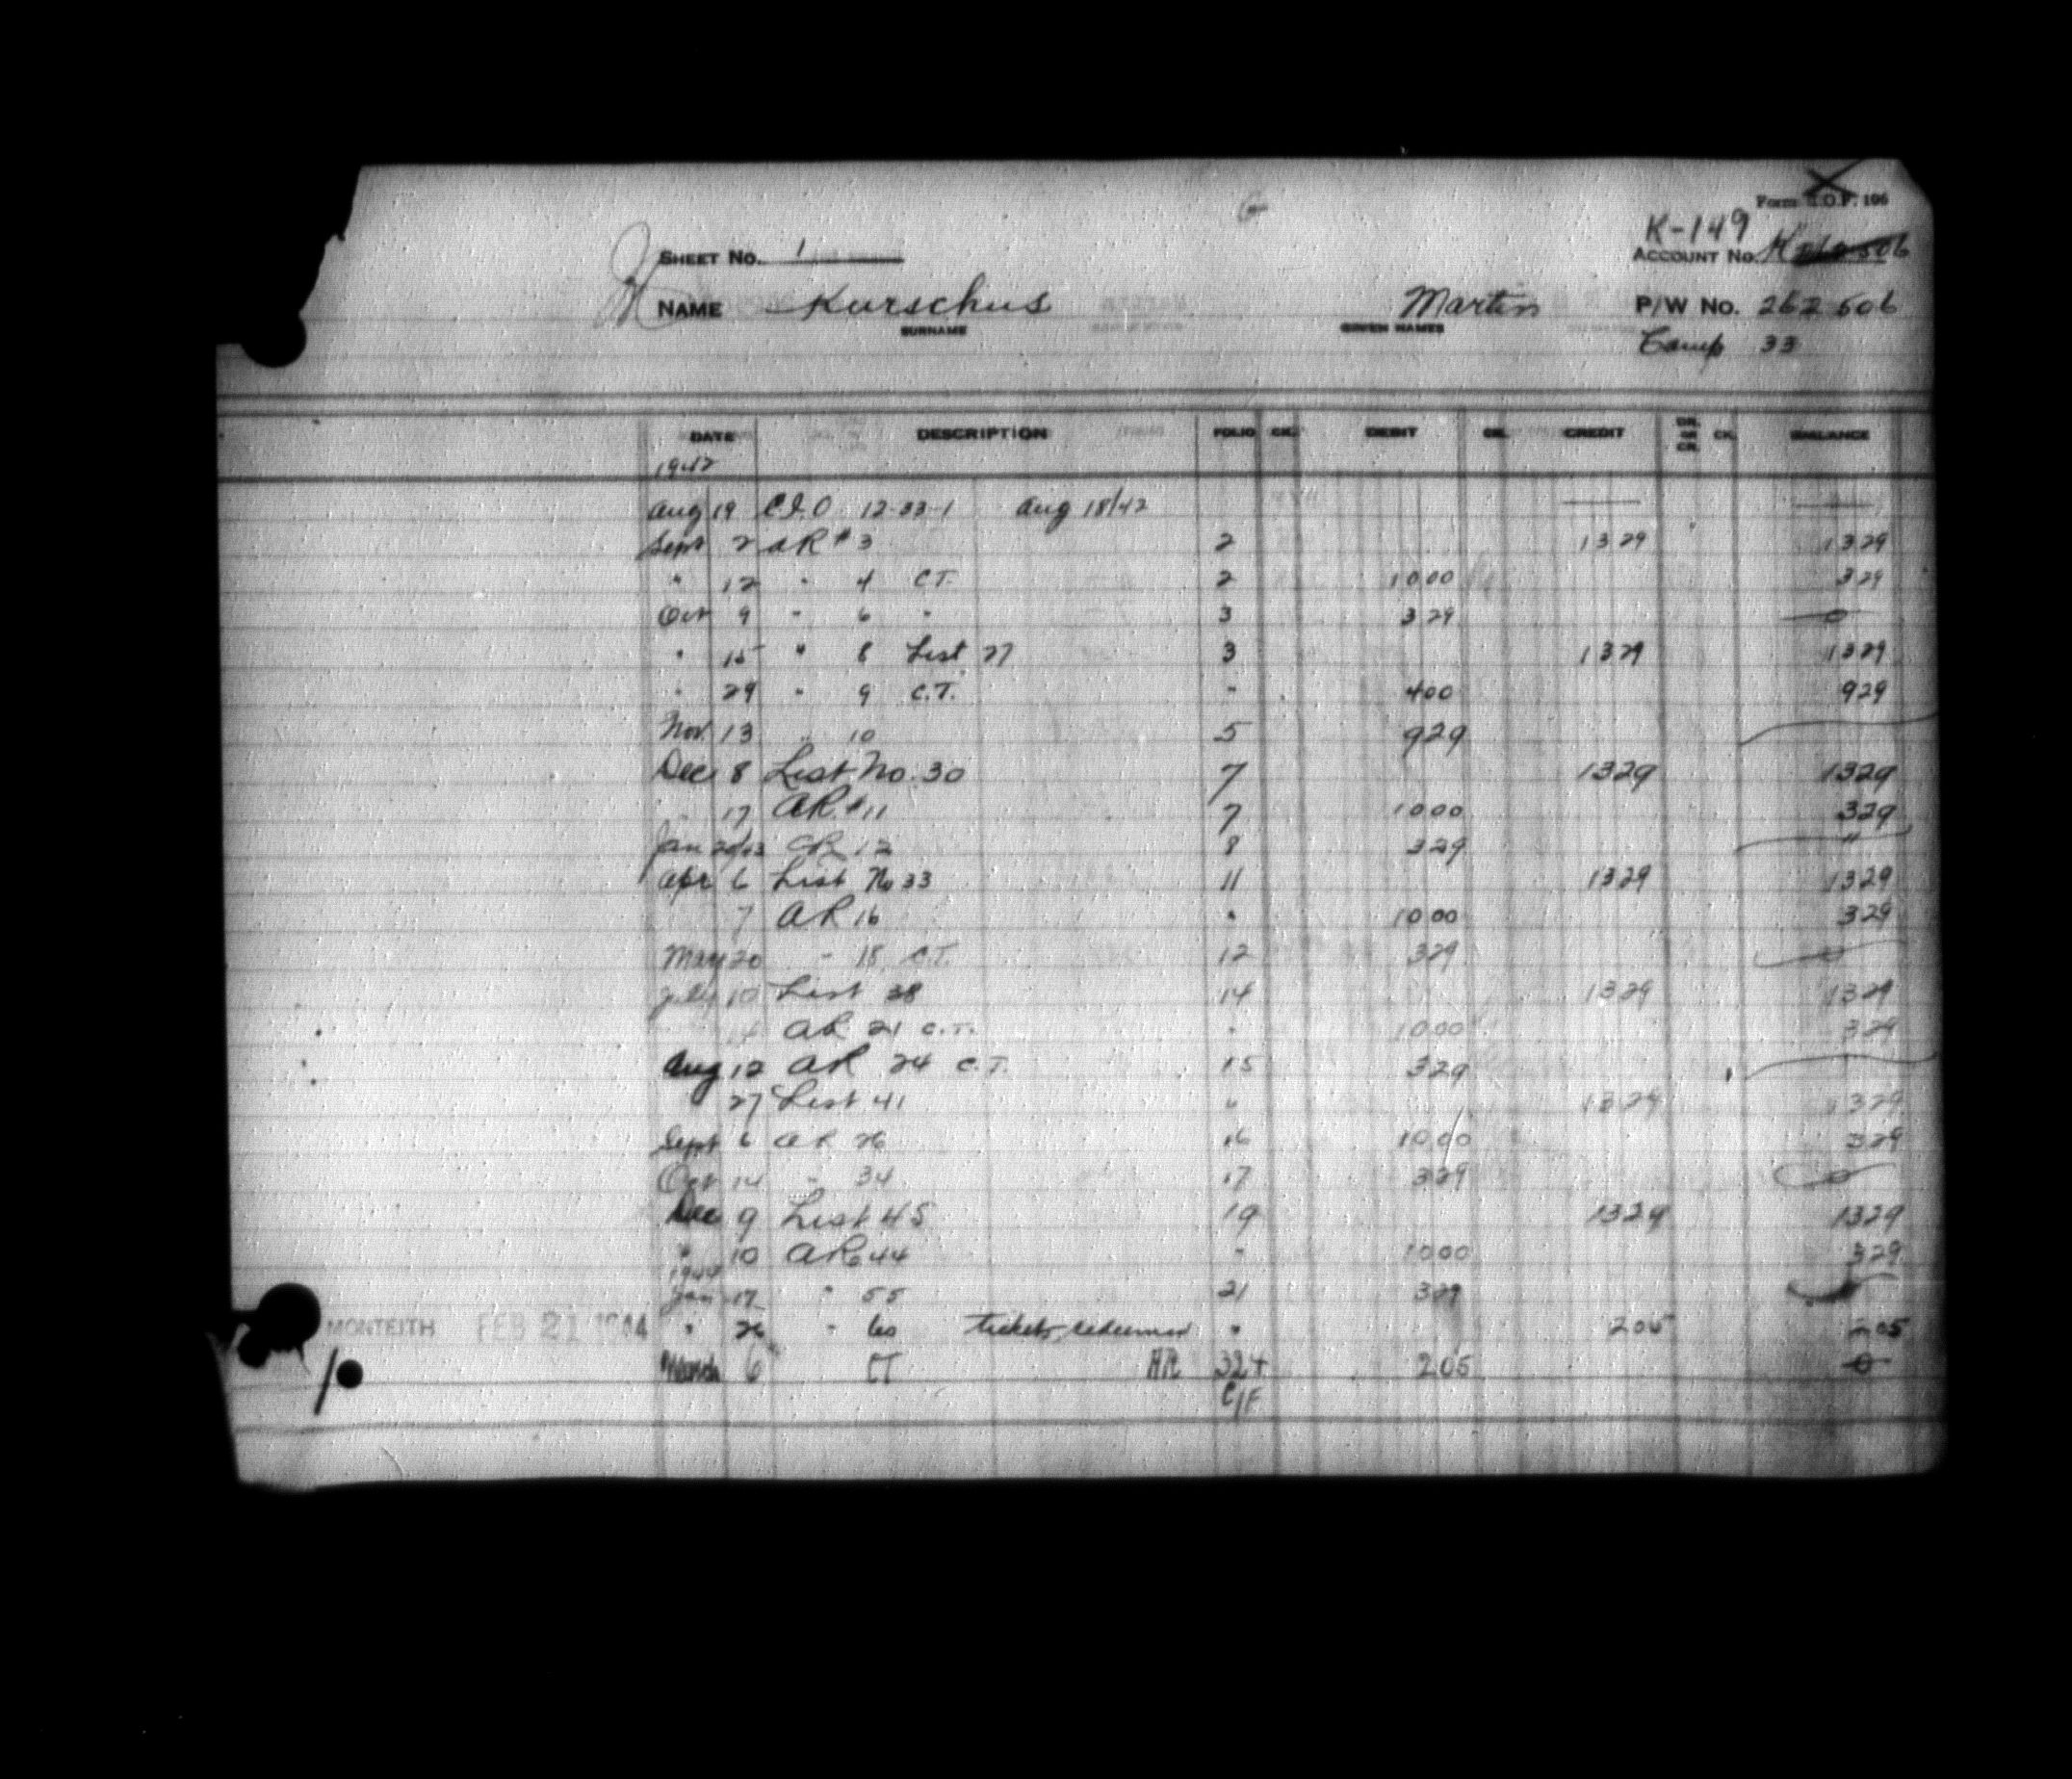 Form S.O.P. 106
K-149
SHEET No. 1 ACCOUNT No.
NAME Kurschus Martin P/W No. 262 506
SURNAME GIVEN NAMES
Camp 33
DATE DESCRIPTION FOLIO CK. DEBIT CK. CREDIT DR. OR CR. CK. BALANCE
1942
Aug 19 C.I.O 12-33-1 Aug 18/42 — —
Sept 2 AR # 3 2 1329 1329
" 12 " 4 C.T. 2 1000 329
Oct 9 " 6 " 3 329 0
" 15 " 8 List 27 3 1329 1329
" 29 " 9 C.T. " 400 929
Nov. 13 " 10 5 929
Dec 8 List No. 30 7 1329 1329
" 17 AR #11 7 1000 329
Jan 20/43 AR 12 8 329 "
Apr 6 List No 33 11 1329 1329
7 AR 16 " 1000 329
May 20 " 18 C.T. 12 329 0
July 10 List 38 14 1329 1329
AR 21 C.T. " 1000 329
Aug 12 AR 24 C.T. 15 329
" 27 List 41 " 1329 1329
Sept 6 AR 26 16 1000 329
Oct 14 " 34 17 329 0
Dec 9 List 45 19 1329 1329
" 10 AR 44 " 1000 329
1944
Jan 17 " 55 21 329
MONTEITH FEB 21 1944 " 26 " 60 tickets redeemed " 205 205
March 6 CT AR 324 205 0
C/F